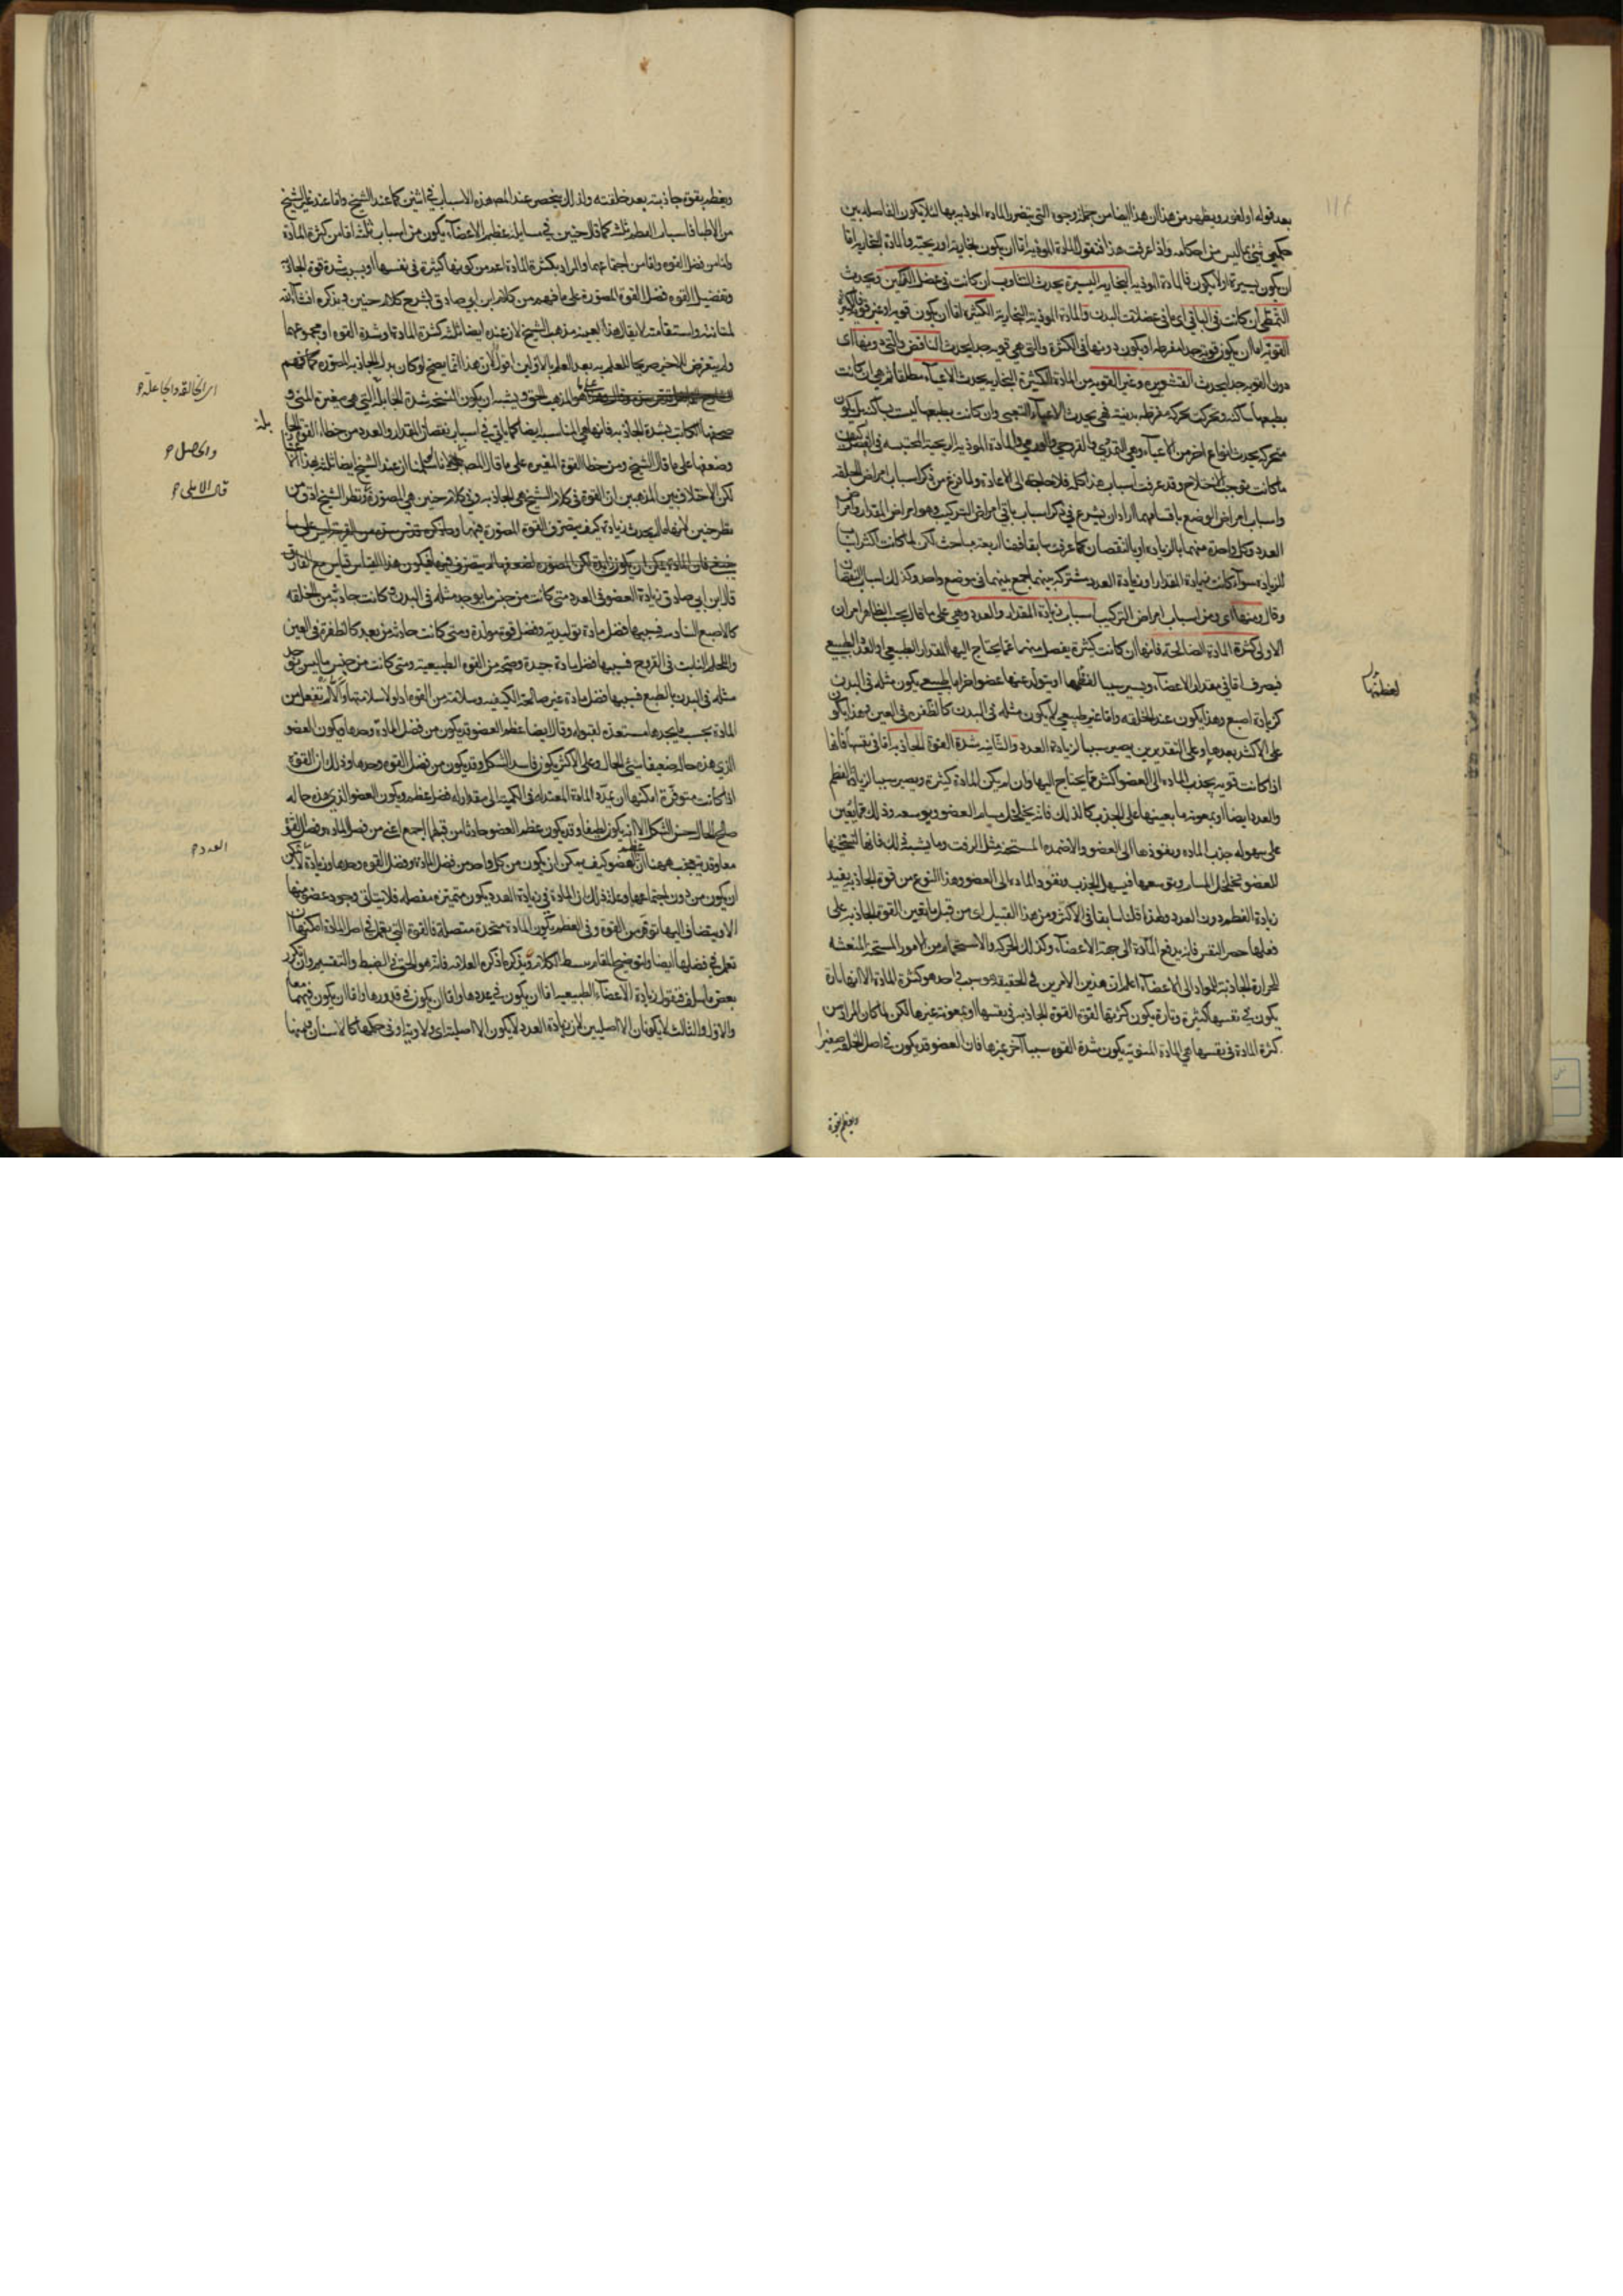 بعد قوله او لغور ويظهر من هذا ان هذا ايضا من جملة وجوه التى تتضرر المادة الموذية بها لئلا يكون الفاصلة بين
حكمى شئ بما ليس من احكامه واذا عرفت هذا فنقول المادة الموذية اما ان يكون بخارية او ريحية والمادة البخارية اما
ان يكون يسيرة او لا يكون فالمادة الموذية البخارية اليسيرة يحدث التثاوب ان كانت فى عضل الفكين ويحدث
التمطى ان كانت فى الباقى اى ما فى عضلات البدن والمادة الموذية البخارية الكثيرة اما ان يكون قوية او غير قوية
القوية اما ان يكون قوية جدا مفرطة او يكون دونها فى الكثرة والتى هى قوية جدا يحدث النافض والتى دونها اى
دون القوية جدا يحدث القشعريرة وغير القوية من المادة الكثيرة البخارية يحدث الاعياء مطلقا ثم هى ان كانت
بطبعها ساكنة وتحركت بحركة مفرطة بدنية فهى يحدث الاعياء التعبى وان كانت بطبعها ليست بساكنة بل يكون
متحركة يحدث انواع اخر من الاعياء وهى القروحى والورمى والمادة الموذية الريحية المحتبسة فى
ما كانت يوجب اختلاج وقد عرفت اسباب هذا كله فلا حاجة الى الاعادة ولما فرغ من ذكر اسباب امراض الخلقة
واسباب امراض الوضع باقسامهما اراد ان يشرع فى ذكر اسباب باقى امراض التركيب وهو امراض المقدار وامراض
العدد وكل واحدة منهما بالزيادة او بالنقصان كما عرفت سابقا فهنا اربعة مباحث لكن لما كانت اكثر اسباب
الزيادة سواء كانت زيادة المقدار او زيادة العدد مشتركة بينهما جمع بينهما فى موضع واحد وكذلك اسباب النقصان
وقال ومنها اى ومن اسباب امراض التركيب اسباب زيادة المقدار والعدد وهى على ما قال بحسب الظاهر امران
الاولى كثرة المادة الصالحة فانها ان كانت كثيرة يفضل منها عما يحتاج اليها المقدار الطبيعى او العدد الطبيعى
فيصرف اما فى مقدار الاعضاء ويصير سببا لعظمها او يتولد عنها عضو اخر اما طبيعى يكون مثله فى البدن
كزيادة اصبع وهذا يكون عند الخلقة واما غير طبيعى لا يكون مثله فى البدن كالظفرة فى العين وهذا يكون
على الاكثر بعدها وعلى التقديرين يصير سببا لزيادة العدد والثانية شدة القوة الجاذبة اما فى نفسها فانها
اذا كانت قوية يجذب المادة الى العضو اكثر مما يحتاج اليها وان لم يكن المادة كثيرة ويصير سببا لزيادة العظم
والعدد ايضا او بمعونة ما يعينها على الجذب كالدلك فانه يخلخل مسام العضو ويوسعه وذلك مما يعين
على سهولة جذب المادة ونفوذها الى العضو والاضمدة المسخنة مثل الزفت وما يشبه ذلك فانها لتسخينها
للعضو تخلخل المسام وتوسعها فيسهل الجذب ونفوذ المادة الى العضو وهذا النوع من قوة الجاذبة يفيد
زيادة العظم دون العدد ولهذا قلنا سابقا فى الاكثر ومن هذا القبيل اى من قبيل ما يعين القوة الجاذبة على
فعلها حصر النفس فانه يدفع المادة الى جهة الاعضاء وكذلك الحركة والاستحمام من الامور المسخنة المنعشة
للحرارة الجاذبة للمواد الى الاعضاء اعلم ان هذين الامرين فى الحقيقة سبب واحد هو كثرة المادة الا انها تارة
يكون فى نفسها كثيرة وتارة يكون كثرتها لقوة القوة الجاذبة فى نفسها او بمعونة غيرها لكن لما كان المراد من
كثرة المادة فى نفسها هى المادة المنوية يكون شدة القوة سببا آخر غيرها فان العضو قد يكون فى اصل الخلقة صغيرا
ويعظم بقوة
لعظمها
ويعظم بقوة جاذبته بعد خلقته ولذلك ينحصر عند المص هذه الاسباب فى اثنين كما عند الشيخ واما عند غير الشيخ
من الاطبا فاسباب العظم ثلثة كما قال حنين فى مسايله عظم الاعضاء يكون من اسباب ثلثة اما من كثرة المادة
واما من فضل القوة واما من اجتماعهما والمراد بكثرة المادة اعم من كونها كثيرة فى نفسها او بسبب شدة قوة الجاذبة
وتفضيل القوة فضل القوة المصورة على ما فهم من كلام ابن ابى صادق بشرح كلام حنين ويذكره انشاء الله
لمتانته واستقامته لا يقال هذا بعينه مذهب الشيخ لان عنده ايضا ثلثة كثرة المادة وشدة القوة او مجموعهما
ولم يتعرض للاخير صريحا للعلم به بعد العلم بالاولين اقول لان هذا انما يصح لو كان بدل الجاذبة المصورة كما فهم
هو المذهب الحق ويشبه ان يكون النسخة شدة الجابلة التى هى مغيرة المنى و
اى الخالقة والجاعلة
والحاصل
قال الاملى
لكن الاختلاف بين المذهبين ان القوة فى كلام الشيخ هى الجاذبة وفى كلام حنين هى المصورة ونظر الشيخ ادق من
قال ابن ابى صادق زيادة العضو فى العدد متى كانت من جنس ما يوجد مثله فى البدن وكانت حادثة من الخلقة
كالاصبع السادسة فسببها فضل مادة توليدية وفضل قوة مولدة ومتى كانت حادثة من بعد كالظفرة فى العين
واللحم النابت فى القروح فسببها فضل مادة جيدة وصحة من القوة الطبيعية ومتى كانت من جنس ما ليس يوجد
مثله فى البدن بالطبع فسببها فضل مادة غير صالحة الكيفية وسلامة من القوة اذ لولا سلامتها والا لم تفعل من
المادة بحسب ما يجدها مستعدة لقبوله وقال ايضا عظم العضو قد يكون من فضل المادة وحدها ويكون العضو
الذى هذه حاله ضعيفا سئ الحال وعلى الاكثر يكون فاسد الشكل وقد يكون من فضل القوة وحدها وذلك ان القوة
اذا كانت متوفرة امكنها ان تمدد المادة المعتدلة فى الكمية الى مقدار له فضل عظم ويكون العضو الذى هذه حاله
صالح الحال حسن الشكل الا انه يكون لطيفا وقد يكون عظم العضو حادثا من قبلهما اجمع اعنى من فضل المادة وفضل القوة
العدد
ان يكون من دون اجتماعهما وعلة ذلك ان المادة فى زيادة العدد يكون متميزة منفصلة فلا يتاتى وجود عضو منها
الا وينضاف اليها توفر من القوة وفى العظم يكون المادة متحدة متصلة فالقوة التى تعمل فى اصل المادة امكنها ان
تعمل فى فضلها ايضا ولتوضيح المقام بسط الكلام ويذكر ما ذكره العلامة فانه هو الحق فى الضبط والتقسيم وان تكرر
بعض ما سلف فنقول زيادة الاعضاء الطبيعية اما ان يكون فى عددها واما ان يكون فى قدورها واما ان يكون فيهما معا